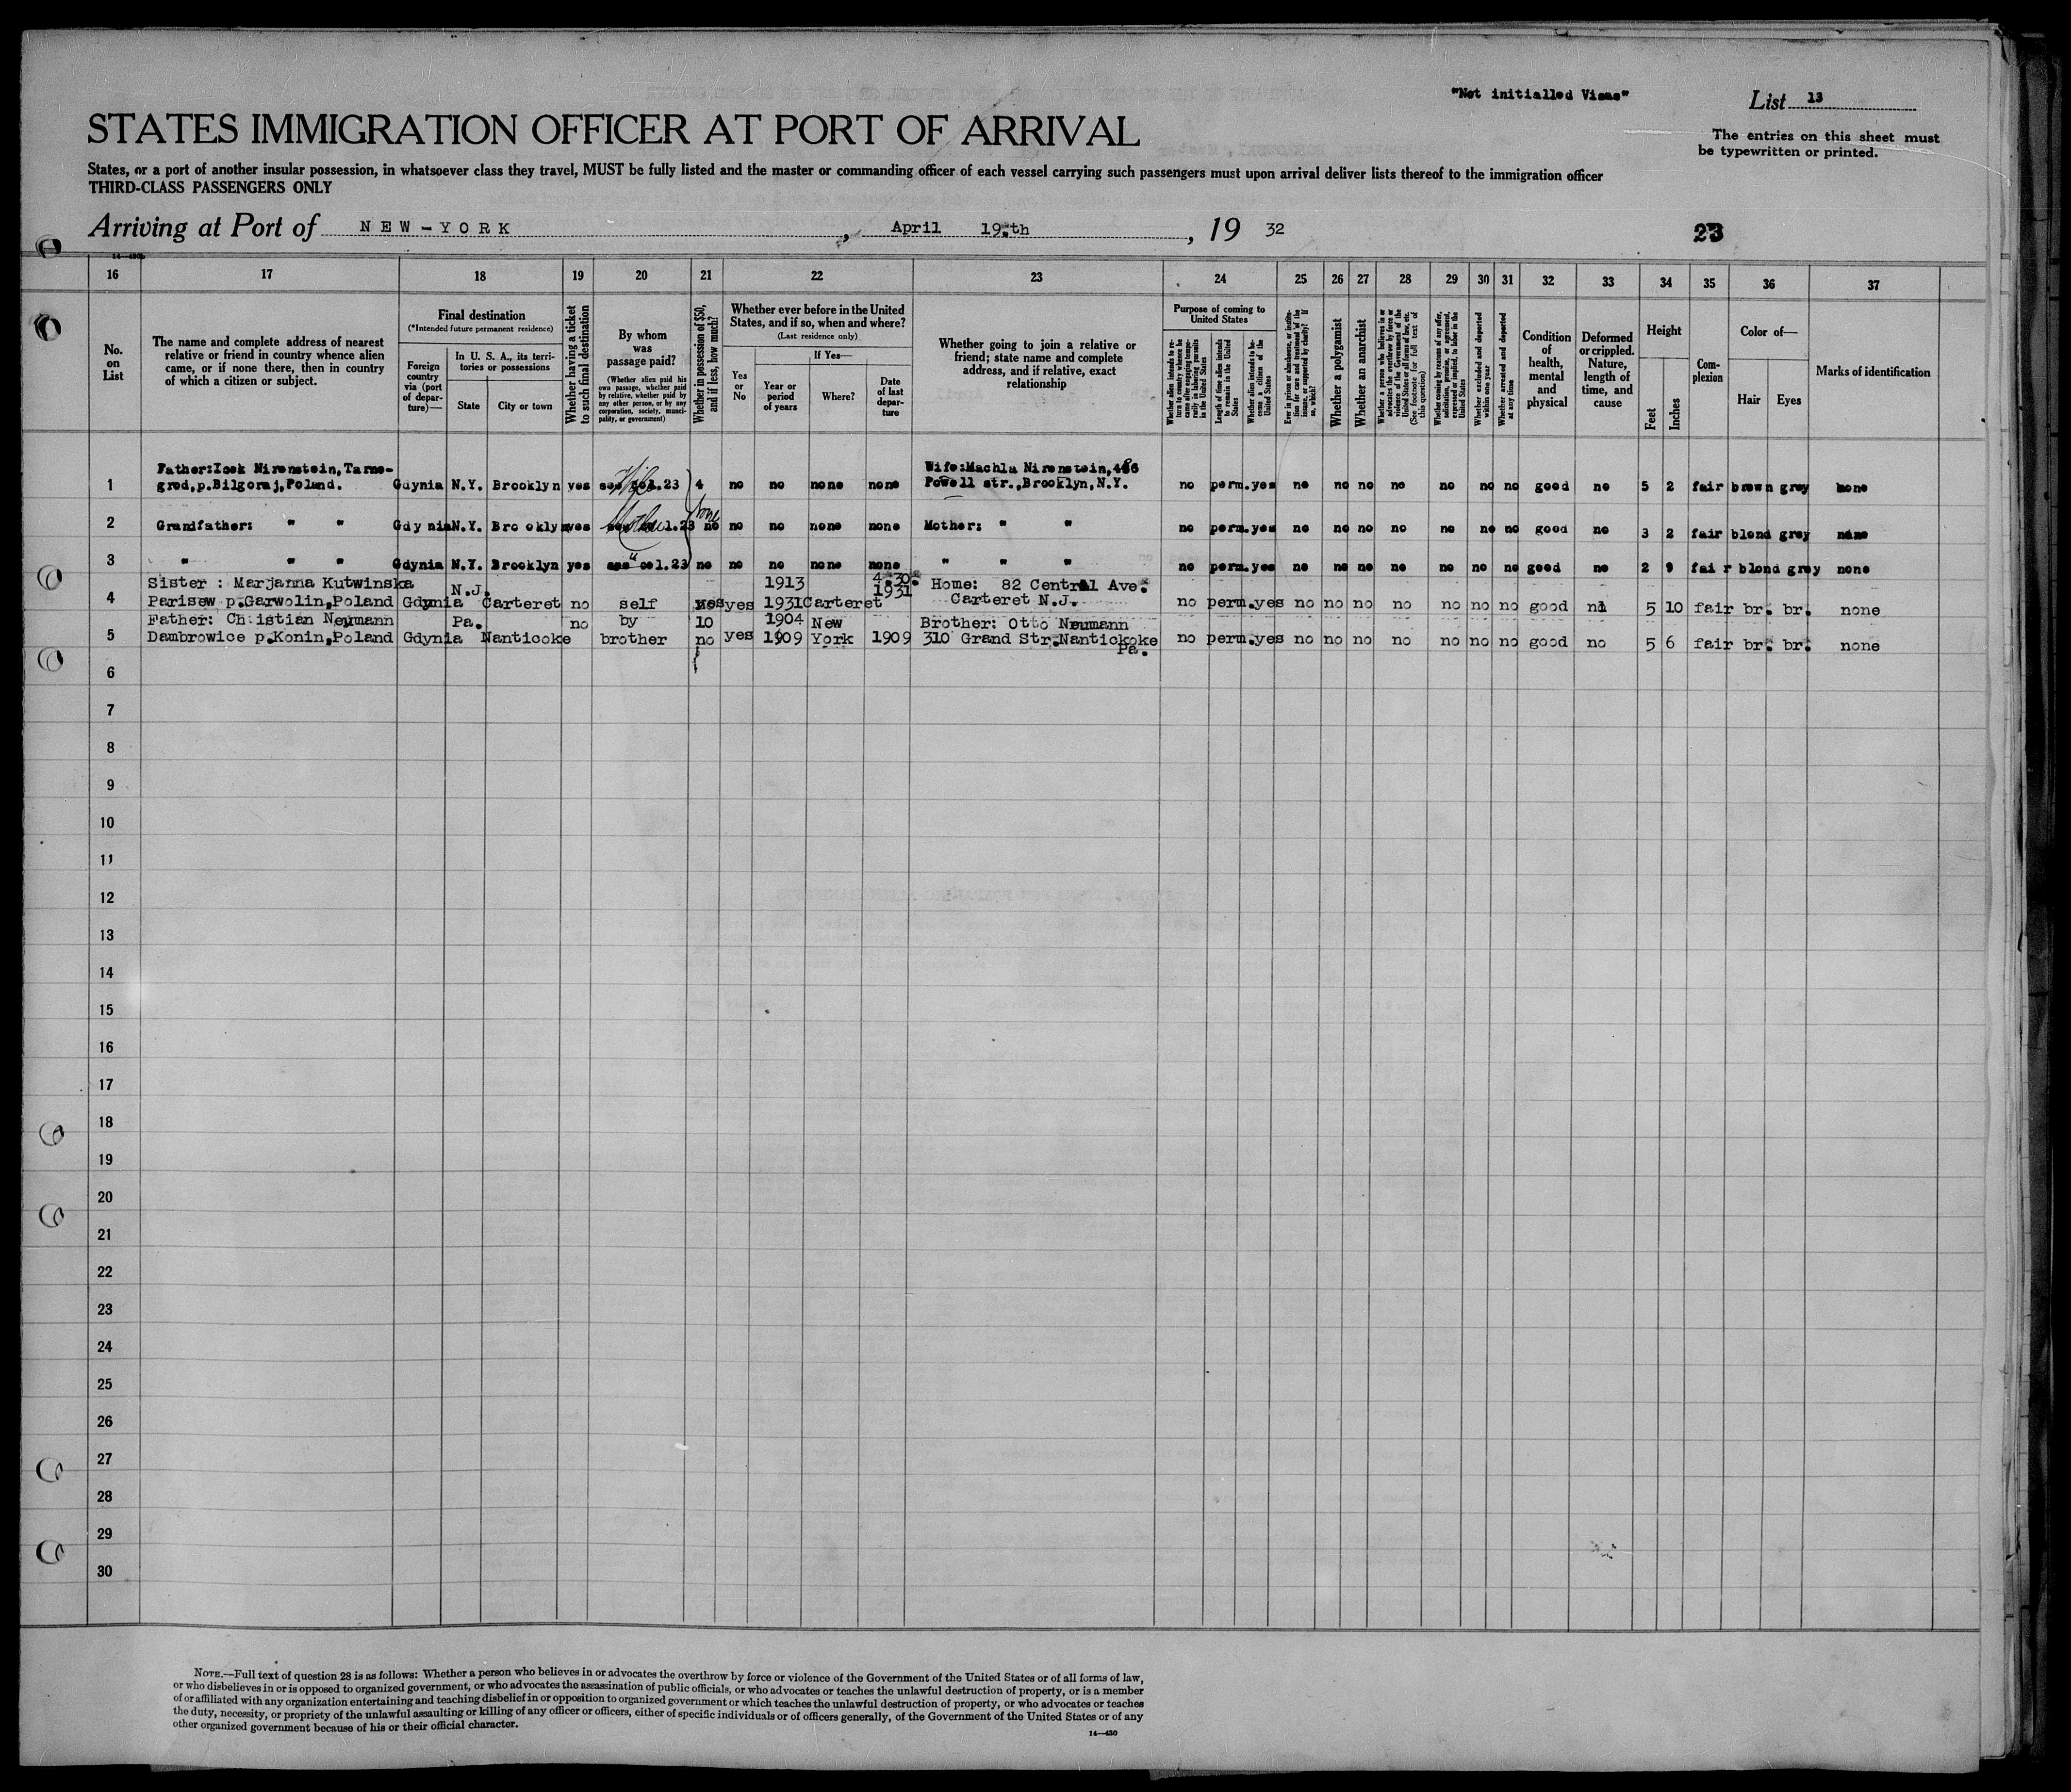 "Not initialled Visas"
List 13
STATES IMMIGRATION OFFICER AT PORT OF ARRIVAL
The entries on this sheet must
be typewritten or printed.
States, or a port of another insular possession, in whatsoever class they travel, MUST be fully listed and the master or commanding officer of each vessel carrying such passengers must upon arrival deliver lists thereof to the immigration officer
THIRD-CLASS PASSENGERS ONLY
Arriving at Port of NEW-YORK, April 19.th, 19 32
23
16 17 18 19 20 21 22 23 24 25 26 27 28 29 30 31 32 33 34 35 36 37
No. on List
The name and complete address of nearest relative or friend in country whence alien came, or if none there, then in country of which a citizen or subject.
Final destination
(*Intended future permanent residence)
Foreign country via (port of departure)—
In U. S. A., its territories or possessions
State
City or town
Whether having a ticket to such final destination
By whom was passage paid?
(Whether alien paid his own passage, whether paid by relative, whether paid by any other person, or by any corporation, society, municipality, or government)
Whether in possession of $50, and if less, how much?
Whether ever before in the United States, and if so, when and where?
(Last residence only)
Yes or No
If Yes—
Year or period of years
Where?
Date of last departure
Whether going to join a relative or friend; state name and complete address, and if relative, exact relationship
Purpose of coming to United States
Whether alien intends to return to country whence he came after engaging temporarily in laboring pursuits in the United States
Length of time alien intends to remain in the United States
Whether alien intends to become a citizen of the United States
Ever in prison or almshouse, or institution for care and treatment of the insane, or supported by charity? If so, which?
Whether a polygamist
Whether an anarchist
Whether a person who believes in or advocates the overthrow by force or violence of the Government of the United States or all forms of law, etc. (See footnote for full text of this question)
Whether coming by reasons of any offer, solicitation, promise, or agreement, expressed or implied, to labor in the United States
Whether excluded and deported within one year
Whether arrested and deported at any time
Condition of health, mental and physical
Deformed or crippled. Nature, length of time, and cause
Height
Feet
Inches
Complexion
Color of—
Hair
Eyes
Marks of identification
Father:Icek Nirenstein,Tarno-
Wife:Machla Nirenstein,486
1 grod,p.Bilgoraj,Poland. Gdynia N.Y. Brooklyn yes Wife col.23 4 no no none none Powell str.,Brooklyn,N.Y. no perm.yes no no no no no no no good no 5 2 fair brown grey none
2 Grandfather: " " Gdynia N.Y. Brooklyn yes Mother col.23 none no no no none none Mother: " " no perm.yes no no no no no no no good no 3 2 fair blond grey none
3 " " " Gdynia N.Y. Brooklyn yes " col.23 no no no none none " " " no perm.yes no no no no no no no good no 2 9 fair blond grey none
Sister : Marjanna Kutwinska N.J. 1913 4.30. 1931 Home: 82 Central Ave.
4 Parisew p.Garwolin,Poland Gdynia Carteret no self yes yes 1931 Carteret Carteret N.J. no perm.yes no no no no no no no good no 5 10 fair br. br. none
Father: Christian Neumann Pa. no by 10 1904 New Brother: Otto Neumann
5 Dambrowice p.Konin,Poland Gdynia Nanticoke brother no yes 1909 York 1909 310 Grand Str.Nanticoke no perm.yes no no no no no no no good no 5 6 fair br. br. none
Pa.
6
7
8
9
10
11
12
13
14
15
16
17
18
19
20
21
22
23
24
25
26
27
28
29
30
NOTE.—Full text of question 28 is as follows: Whether a person who believes in or advocates the overthrow by force or violence of the Government of the United States or of all forms of law,
or who disbelieves in or is opposed to organized government, or who advocates the assassination of public officials, or who advocates or teaches the unlawful destruction of property, or is a member
of or affiliated with any organization entertaining and teaching disbelief in or opposition to organized government or which teaches the unlawful destruction of property, or who advocates or teaches
the duty, necessity, or propriety of the unlawful assaulting or killing of any officer or officers, either of specific individuals or of officers generally, of the Government of the United States or of any
other organized government because of his or their official character.
14—430